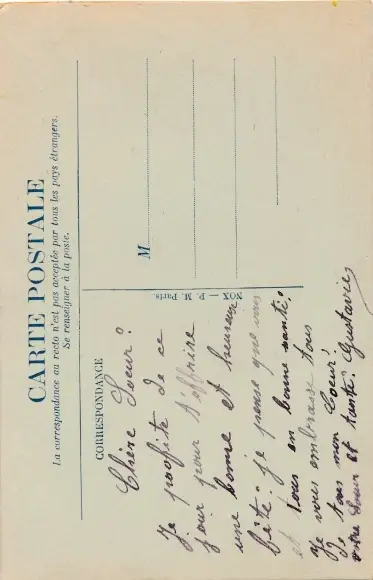 CARTE POSTALE
La correspondance au recto n'est pas acceptée par tous les pays étrangers.
Se renseigner à la poste.
CORRESPONDANCE
Chère Soeur?
Je proofite de ce
jour pour t'offrire
une bonne et heureuse
fête: je pense que vous
et tous en bonne santé?
Je vous embrasse tous
de tous mon Coeur!
votre soeur et tante: Gustavie
M
NOX — P. M. Paris.